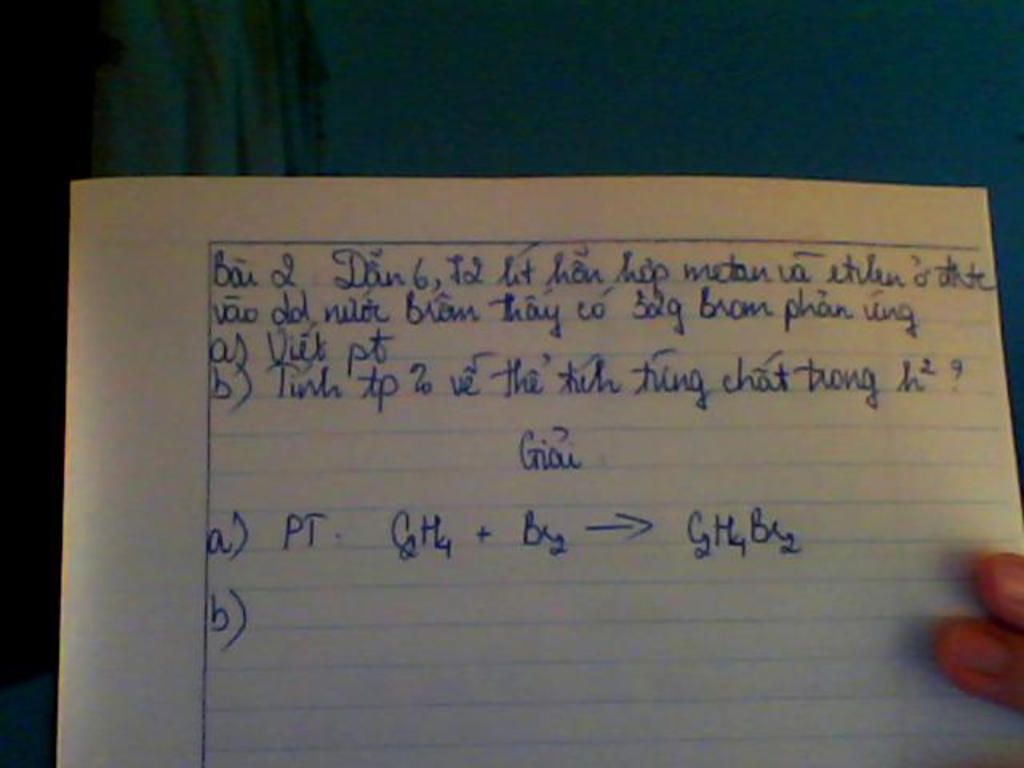 Bài 2 Dẫn 6,72 lít hỗn hợp metan và etilen ở đktc
vào dd nước Brôm thấy có 32g Brom phản ứng
a) Viết pt
b) Tính tp % về thể tích từng chất trong h² ?
Giải
a) PT. C₂H₄ + Br₂ → C₂H₄Br₂
b)